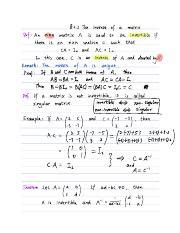 §2.3 The inverse of a matrix
Def: An n×n matrix A is said to be invertible if
there is an n×n matrix C such that
CA = In and AC = In
In this case, C is an inverse of A and denoted by
Remark: The inverse of A is unique.
Proof: If B and C are both inverse of A, then
AB = BA = In AC = CA = In
Then B = BIn = B(AC) = (BA)C = InC = C
Def: If a matrix is not invertible, it is called
singular matrix
invertible non-singular
non-invertible singular
Example: If A = and C = , then
AC =
= = I2 ⟹ C = A⁻¹
CA = I2 and
A = C⁻¹
Theorem Let A = [a b
c d]. If ad-bc ≠ 0, then
A is invertible and A⁻¹ = 1/ad-bc [d -b
-c a]